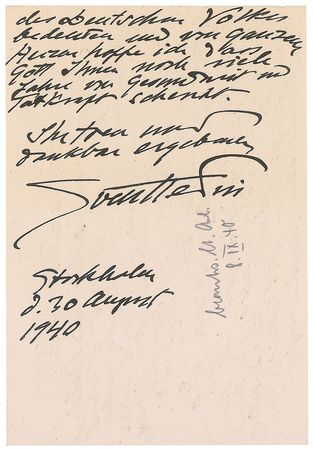 des Deutschen Volkes
bedeuten und von ganzem
Herzen hoffe ich, dass
Gott Ihnen noch viele
Jahre von Gesundheit und
Tatkraft schenkt.
Ihr treu und
dankbar ergebener
Sven Hedin
Stockholm
d. 30 August
1940
8. IX. 40